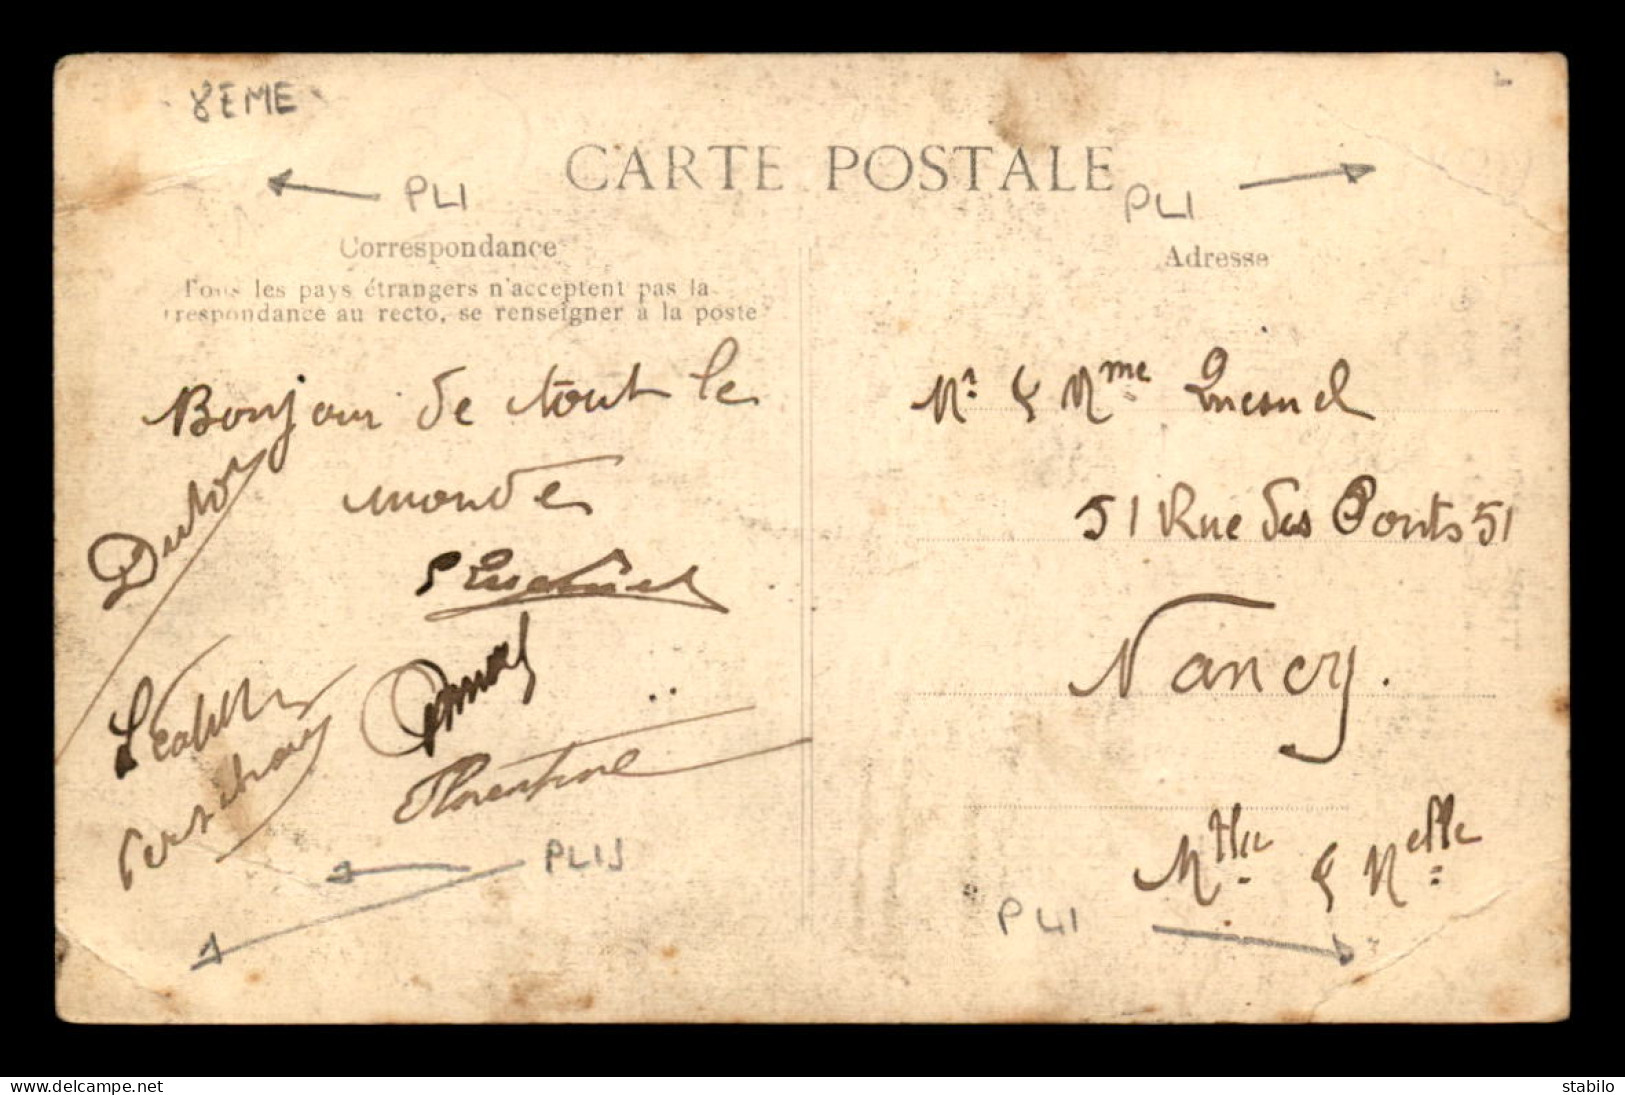 8EME
CARTE POSTALE
PLI
PLI
Correspondance
Adresse
Tous les pays étrangers n'acceptent pas la
respondance au recto, se renseigner à la poste
Bonjour de tout le
monde
Mr & Mme Quesnel
51 Rue des Ponts 51
Nancy.
Florentine
Mlle & Melle
PLIS
PLI
www.delcampe.net
stabilo